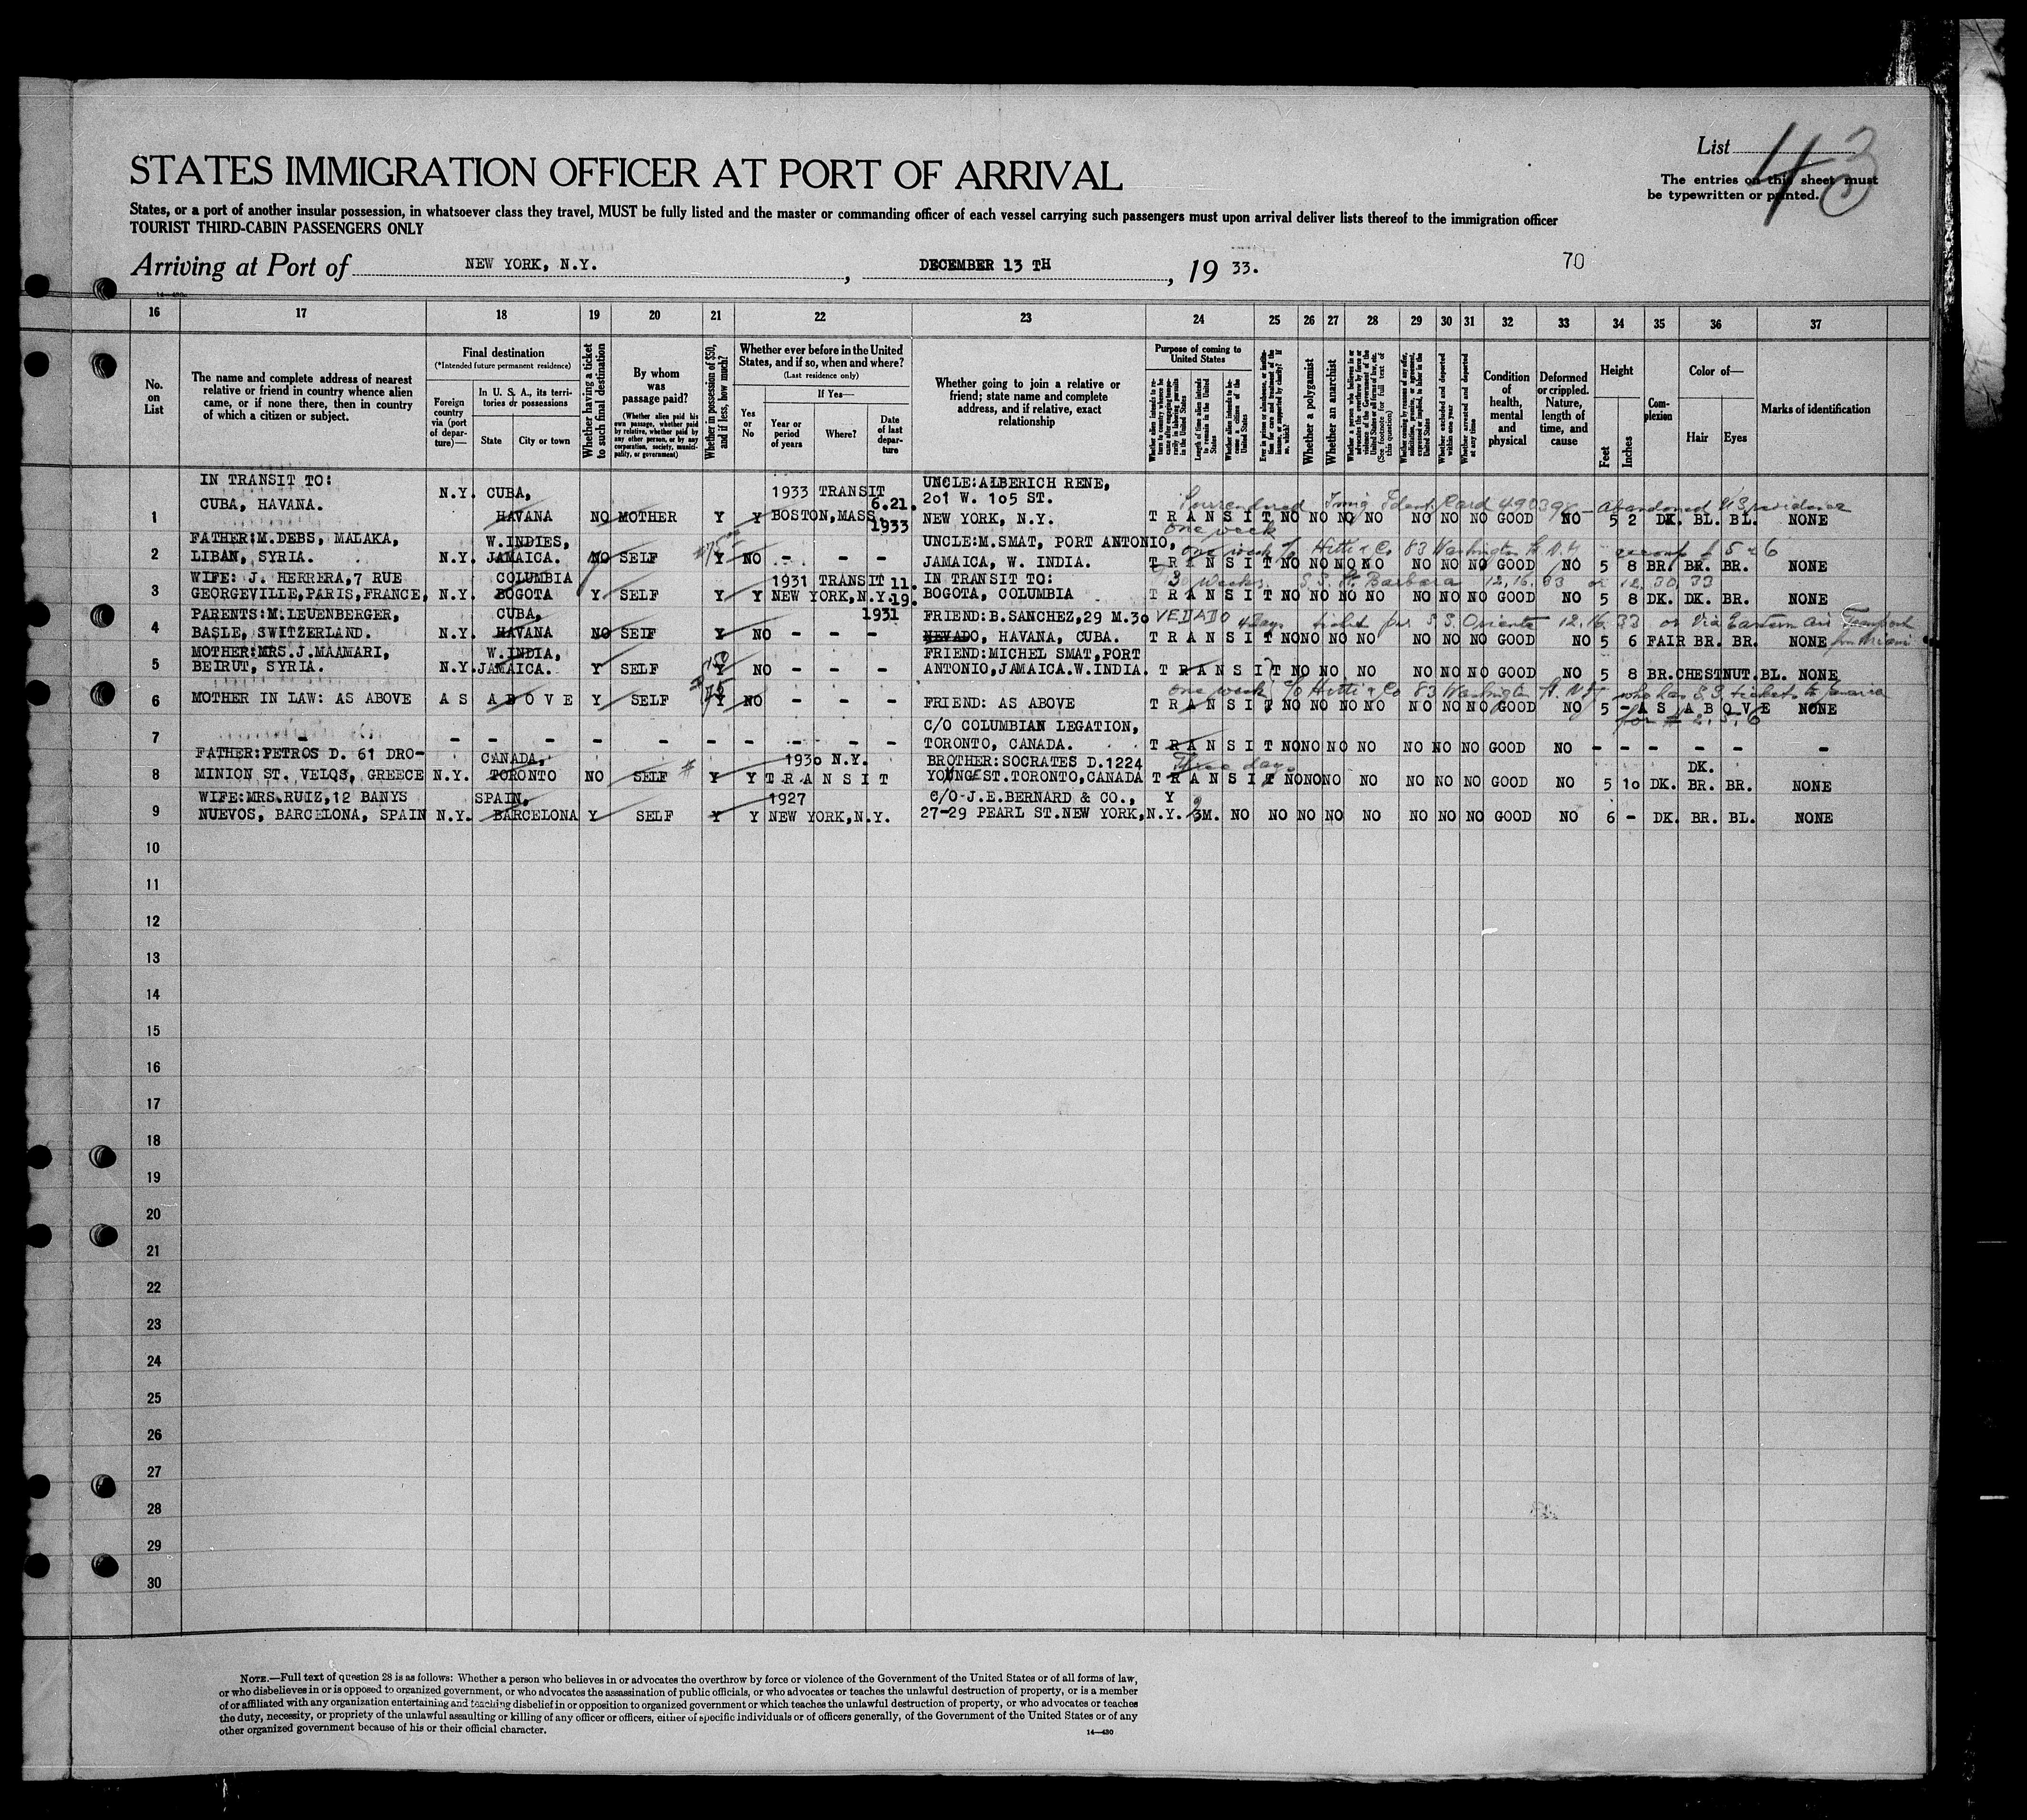 List 43
STATES IMMIGRATION OFFICER AT PORT OF ARRIVAL
The entries on this sheet must
be typewritten or printed.
States, or a port of another insular possession, in whatsoever class they travel, MUST be fully listed and the master or commanding officer of each vessel carrying such passengers must upon arrival deliver lists thereof to the immigration officer
TOURIST THIRD-CABIN PASSENGERS ONLY
Arriving at Port of NEW YORK, N.Y. , DECEMBER 13 TH , 19 33. 70
16 17 18 19 20 21 22 23 24 25 26 27 28 29 30 31 32 33 34 35 36 37
No. on List
The name and complete address of nearest relative or friend in country whence alien came, or if none there, then in country of which a citizen or subject.
Final destination
(*Intended future permanent residence)
Foreign country via (port of departure)—
In U. S. A., its territories or possessions
State City or town
Whether having a ticket to such final destination
By whom was passage paid?
(Whether alien paid his own passage, whether paid by relative, whether paid by any other person, or by any corporation, society, municipality, or government)
Whether in possession of $50, and if less, how much?
Whether ever before in the United States, and if so, when and where?
(Last residence only)
Yes or No
If Yes—
Year or period of years
Where?
Date of last departure
Whether going to join a relative or friend; state name and complete address, and if relative, exact relationship
Purpose of coming to United States
Length of time alien intends to remain in the United States
Whether alien intends to become a citizen of the United States
Whether a polygamist
Whether an anarchist
Whether excluded and deported within one year
Whether arrested and deported at any time
Condition of health, mental and physical
Deformed or crippled. Nature, length of time, and cause
Height
Feet Inches
Complexion
Color of—
Hair Eyes
Marks of identification
IN TRANSIT TO: UNCLE:ALBERICH RENE,
CUBA, HAVANA. N.Y. CUBA, 1933 TRANSIT 6.21. 201 W. 105 ST. Surrendered Immig Ident. Card 490398 - abandoned US residence
1 HAVANA NO MOTHER Y Y BOSTON,MASS. 1933 NEW YORK, N.Y. T R A N S I T NO NO NO NO NO NO NO GOOD NO 5 2 DK. BL. BL. NONE
one week
FATHER:M.DEBS, MALAKA, W.INDIES, UNCLE:M.SMAT, PORT ANTONIO, one week c/o Hitti & Co 83 Washington St. N.Y
2 LIBAN, SYRIA. N.Y. JAMAICA. NO SELF $75 Y NO - - - JAMAICA, W. INDIA. T R A N S I T NO NO NO NO NO NO NO GOOD NO 5 8 BR. BR. BR. NONE
WIFE: J. HERRERA,7 RUE COLUMBIA 1931 TRANSIT 11. IN TRANSIT TO: 3 weeks S.S. St. Barbara 12,16.33 or 12.30.33
3 GEORGEVILLE,PARIS,FRANCE, N.Y. BOGOTA Y SELF Y Y NEW YORK,N.Y. 19. 1931 BOGOTA, COLUMBIA T R A N S I T NO NO NO NO NO NO NO GOOD NO 5 8 DK. DK. BR. NONE
PARENTS:M.LEUENBERGER, CUBA, FRIEND:B.SANCHEZ,29 M.30 VEDADO 4 days ticket per S.S. Oriente 12.16.33 or via Eastern Air Transport
4 BASLE, SWITZERLAND. N.Y. HAVANA NO SELF Y NO - - - NEVADO, HAVANA, CUBA. T R A N S I T NO NO NO NO NO NO NO GOOD NO 5 6 FAIR BR. BR. NONE
MOTHER:MRS.J.MAAMARI, W.INDIA, FRIEND:MICHEL SMAT,PORT
5 BEIRUT, SYRIA. N.Y. JAMAICA. Y SELF Y NO - - - ANTONIO,JAMAICA.W.INDIA. T R A N S I T NO NO NO NO NO NO GOOD NO 5 8 BR. CHESTNUT. BL. NONE
one week c/o Hitti & Co 83 Washington St. N.Y who has S.S. tickets to Jamaica
6 MOTHER IN LAW: AS ABOVE A S A B O V E Y SELF $75 Y NO - - - FRIEND: AS ABOVE T R A N S I T NO NO NO NO NO NO NO GOOD NO 5 - A S A B O V E NONE
for # 2.5.6
C/O COLUMBIAN LEGATION,
7 - - - - - - - - - - - TORONTO, CANADA. T R A N S I T NO NO NO NO NO NO NO GOOD NO - - - - - -
FATHER:PETROS D. 61 DRO- CANADA, 1930 N.Y. BROTHER:SOCRATES D.1224 Three days DK.
8 MINION ST. VELOS, GREECE N.Y. TORONTO NO SELF Y Y T R A N S I T YONGEST.TORONTO,CANADA T R A N S I T NO NO NO NO NO NO NO GOOD NO 5 10 DK. BR. BR. NONE
WIFE:MRS.RUIZ,12 BANYS SPAIN, 1927 C/O J.E.BERNARD & CO., Y
9 NUEVOS, BARCELONA, SPAIN N.Y. BARCELONA Y SELF Y Y NEW YORK,N.Y. 27-29 PEARL ST.NEW YORK,N.Y. 3M. NO NO NO NO NO NO NO NO GOOD NO 6 - DK. BR. BL. NONE
10
11
12
13
14
15
16
17
18
19
20
21
22
23
24
25
26
27
28
29
30
NOTE.—Full text of question 28 is as follows: Whether a person who believes in or advocates the overthrow by force or violence of the Government of the United States or of all forms of law,
or who disbelieves in or is opposed to organized government, or who advocates the assassination of public officials, or who advocates or teaches the unlawful destruction of property, or is a member
of or affiliated with any organization entertaining and teaching disbelief in or opposition to organized government or which teaches the unlawful destruction of property, or who advocates or teaches
the duty, necessity, or propriety of the unlawful assaulting or killing of any officer or officers, either of specific individuals or of officers generally, of the Government of the United States or of any
other organized government because of his or their official character.
14—430